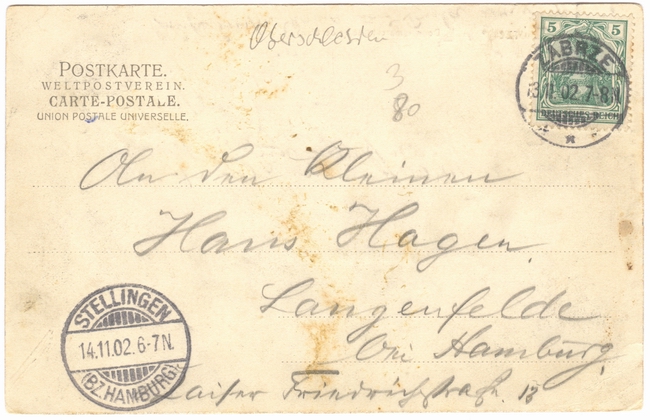 Oberschlesien
5 5
DEUTSCHES REICH
ZABRZE
13.11.02.7-8N
POSTKARTE.
WELTPOSTVEREIN.
CARTE-POSTALE.
UNION POSTALE UNIVERSELLE.
3
80
An den Kleinen
Hans Hagen
Langenfelde
bei Hamburg,
Kaiser Friedrichstraße. 13
STELLINGEN
14.11.02.6-7N.
(BZ.HAMBURG)